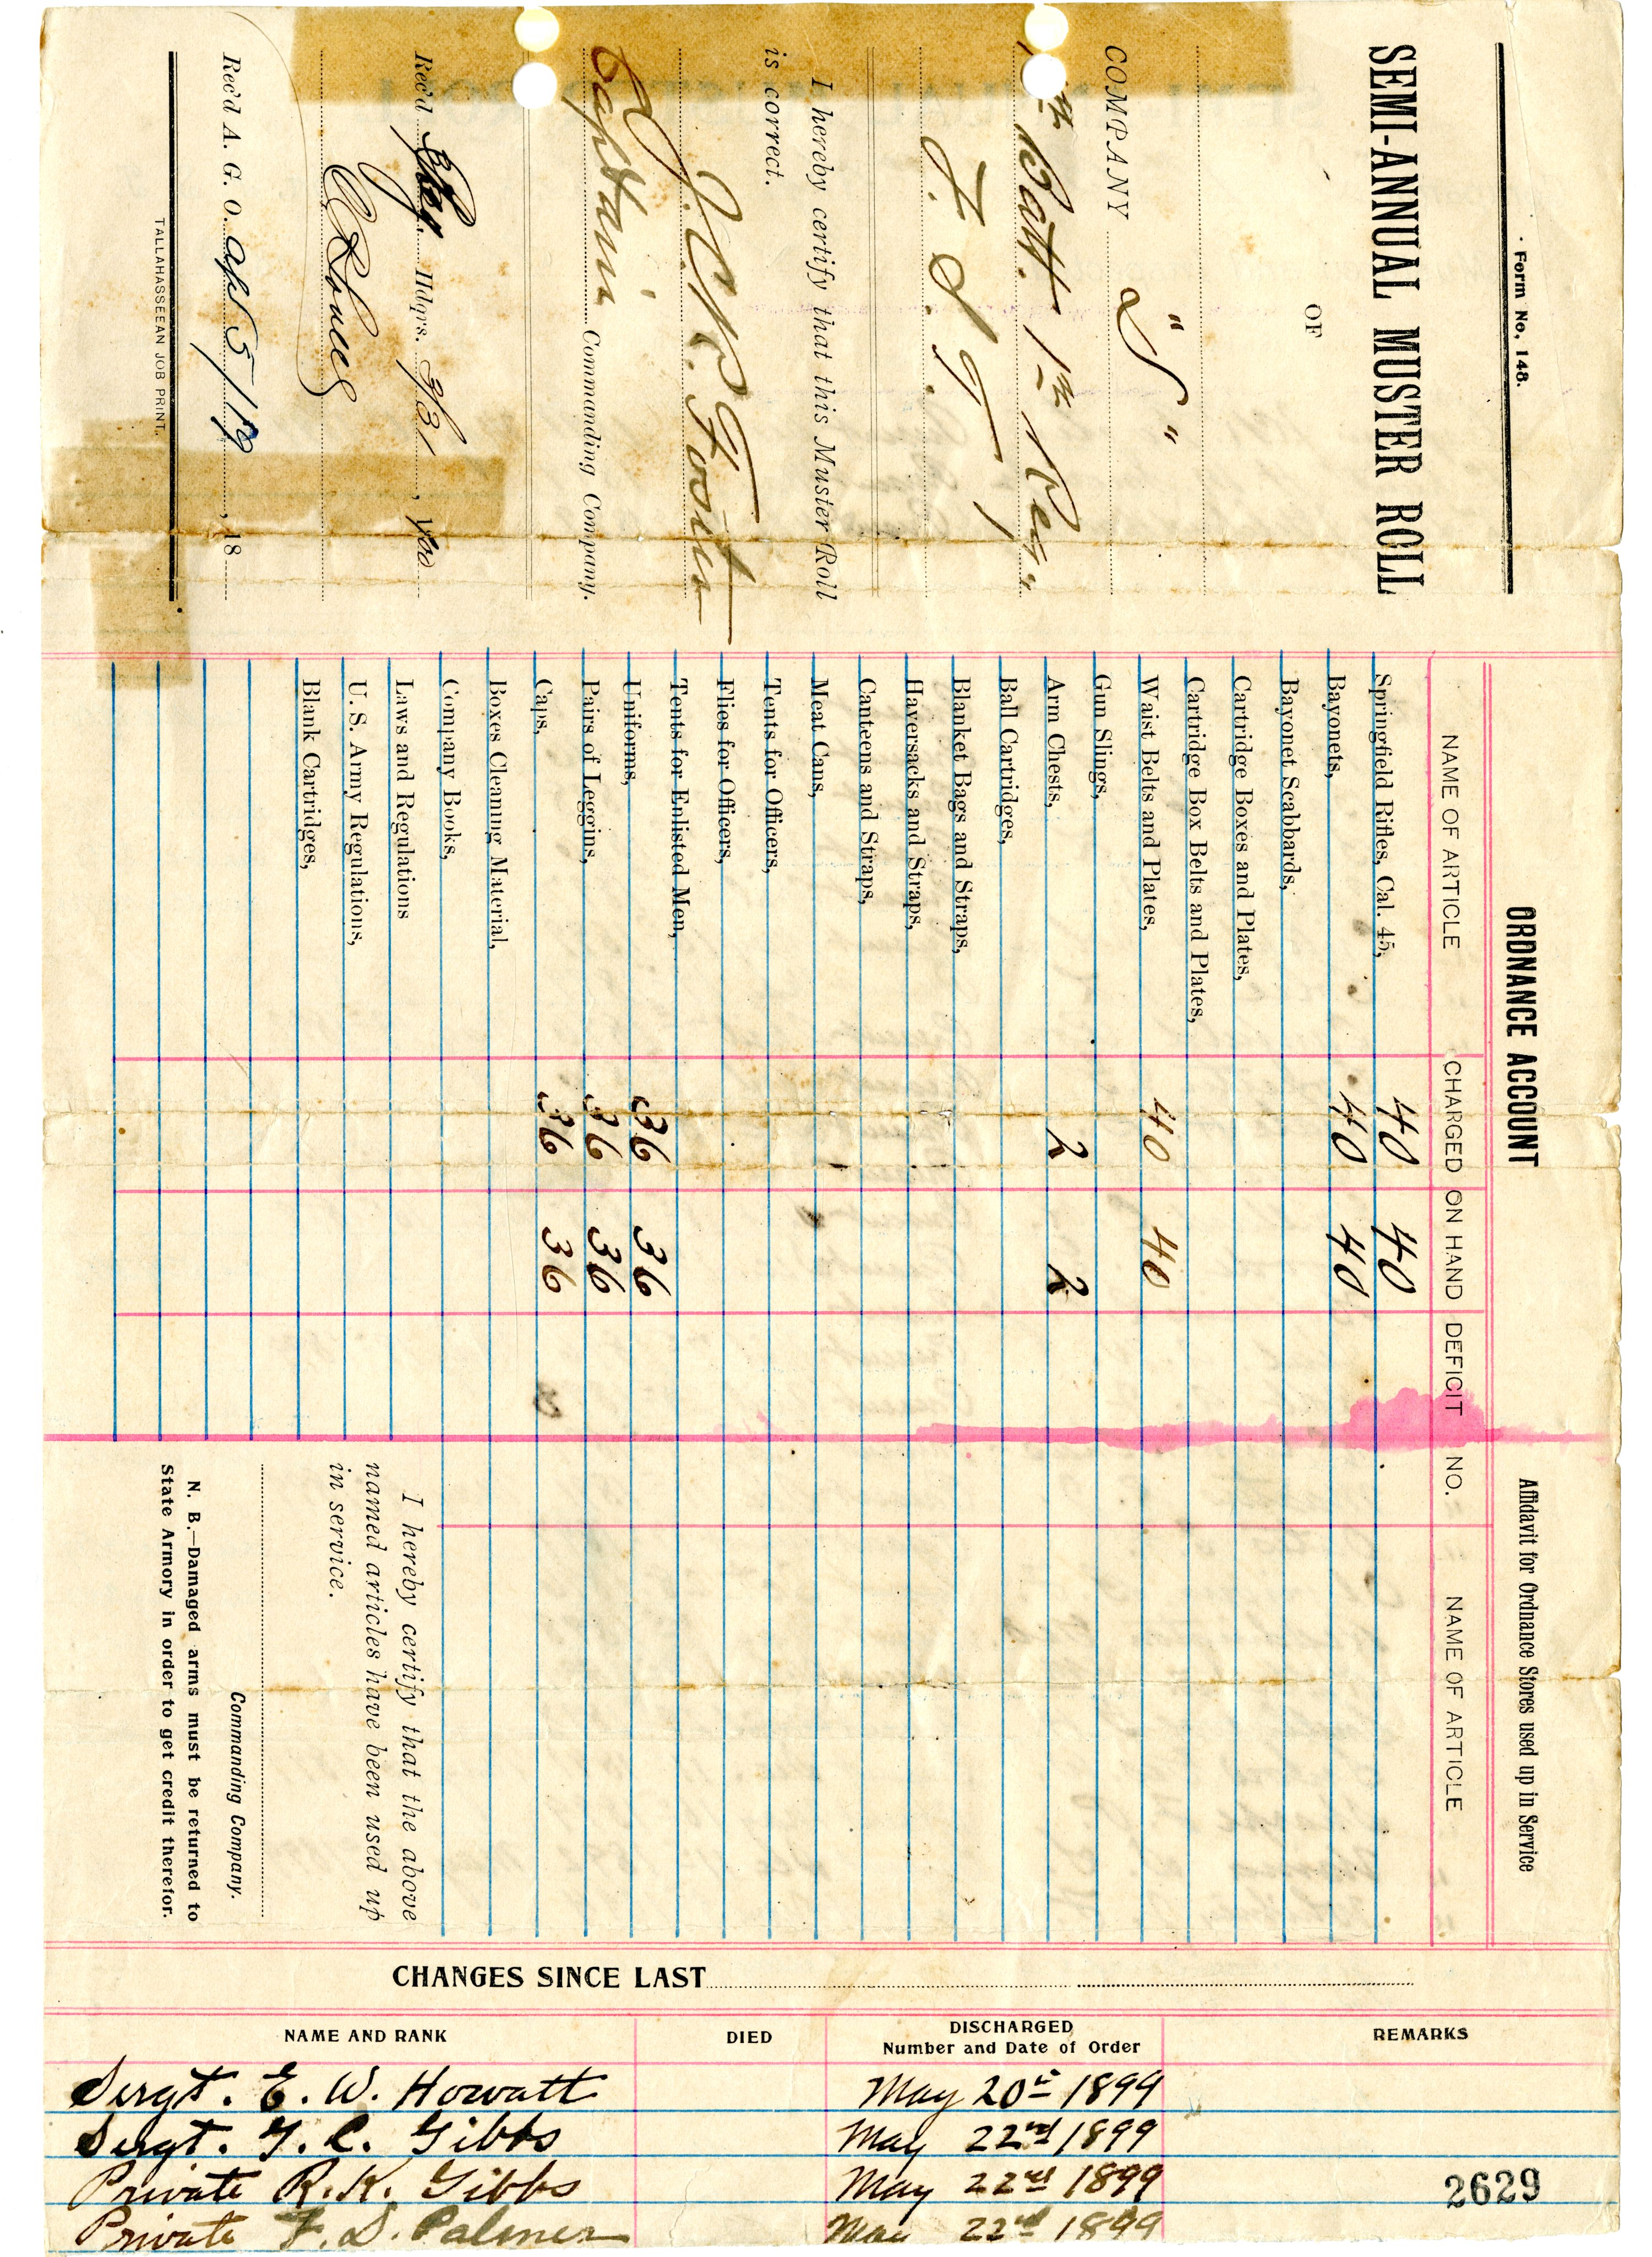 Form No. 148.
SEMI-ANNUAL MUSTER ROLL
OF
COMPANY
Batt. 1st Reg.
I hereby certify that this Muster Roll
is correct.
Captain Commanding Company.
Rec'd Hdqrs. 3/31, 
Rec'd A. G. O. 5/19, 18
TALLAHASSEEAN JOB PRINT.
ORDNANCE ACCOUNT
NAME OF ARTICLE CHARGED ON HAND DEFICIT
Springfield Rifles, Cal. 45, 40 40
Bayonets, 40 40
Bayonet Scabbards,
Cartridge Boxes and Plates,
Cartridge Box Belts and Plates,
Waist Belts and Plates, 40 40
Gun Slings,
Arm Chests, 2 2
Ball Cartridges,
Blanket Bags and Straps,
Haversacks and Straps,
Canteens and Straps,
Meat Cans,
Tents for Officers,
Flies for Officers,
Tents for Enlisted Men,
Uniforms, 36 36
Pairs of Leggins, 36 36
Caps, 36 36
Boxes Cleaning Material,
Company Books,
Laws and Regulations
U. S. Army Regulations,
Blank Cartridges,
Affidavit for Ordnance Stores used up in Service
NO. NAME OF ARTICLE
I hereby certify that the above
named articles have been used up
in service.
Commanding Company.
N. B.—Damaged arms must be returned to
State Armory in order to get credit therefor.
CHANGES SINCE LAST
NAME AND RANK DIED DISCHARGED REMARKS
Number and Date of Order
Sergt. E. W. Howatt May 20th 1899
Sergt. G. C. Gibbs May 22nd 1899
Private R. K. Gibbs May 22nd 1899
Private F. D. Palmer May 22nd 1899
2629